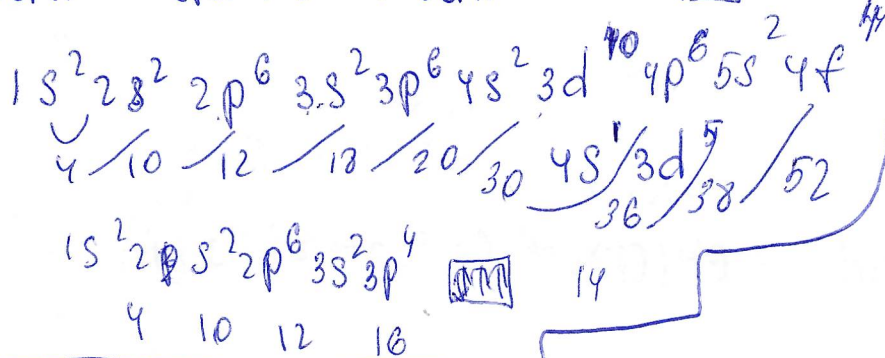 1s² 2s² 2p⁶ 3s² 3p⁶ 4s² 3d¹⁰ 4p⁶ 5s² 4f¹⁴
4 / 10 / 12 / 18 / 20 / 30 4s¹ / 3d⁵ 36 / 38 / 52
1s² 2s² 2p⁶ 3s² 3p⁴ 14
4 10 12 16